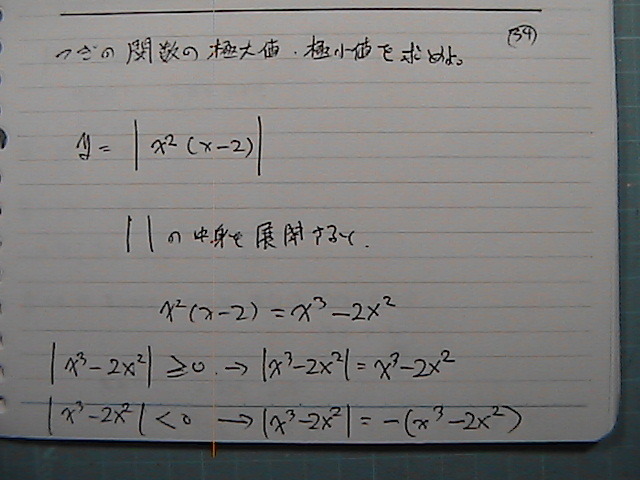 (34)
つぎの関数の極大値・極小値を求めよ。
y = | x² (x-2) |
| | の中身を展開すると.
x²(x-2) = x³-2x²
|x³-2x²| ≧0. → |x³-2x²| = x³-2x²
|x³-2x²| <0 → |x³-2x²| = -(x³-2x²)